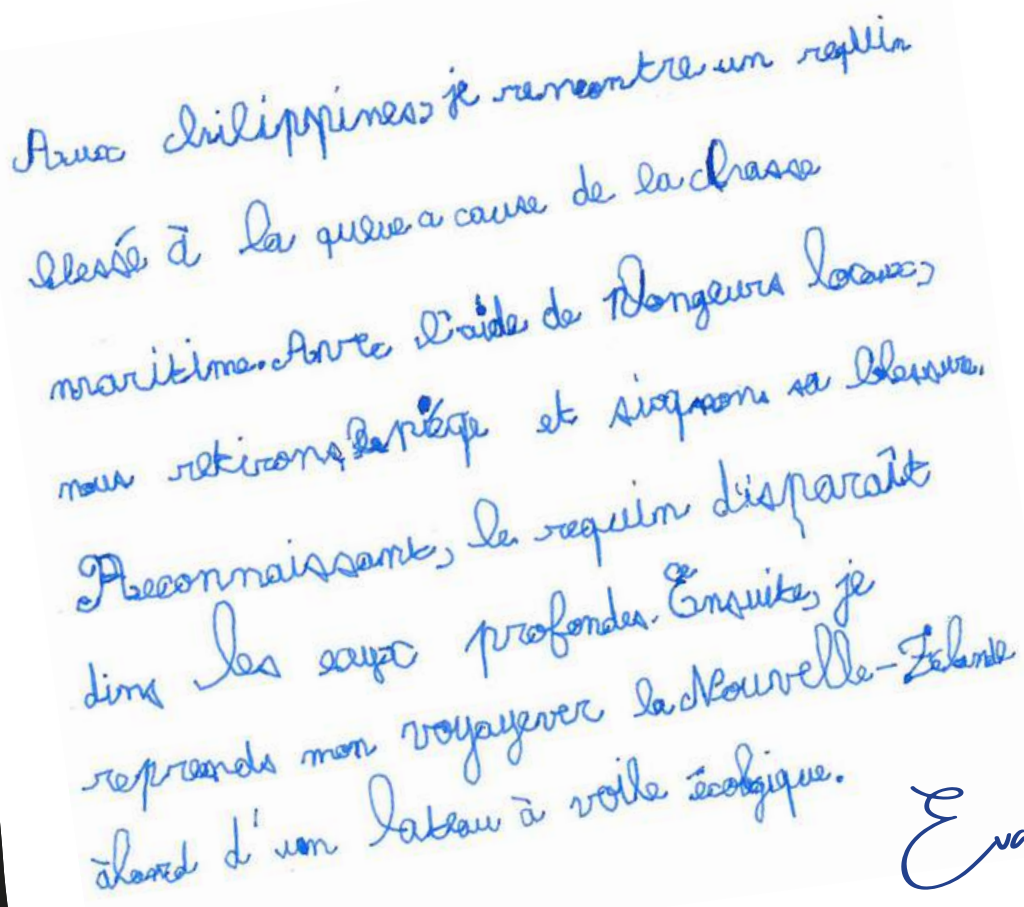 Aux Philippines, je rencontre un requin
blessé à la queue a cause de la chasse
maritime. Avec l'aide de Plongeurs locaux,
nous retirons le piège et siognons sa blessure.
Reconnaissant, le requin disparaît
dins les eaux profondes. Ensuite, je
reprends mon voyage ver la Nouvelle-Zelande
àbord d'un bateau à voile écolgique.
Eva